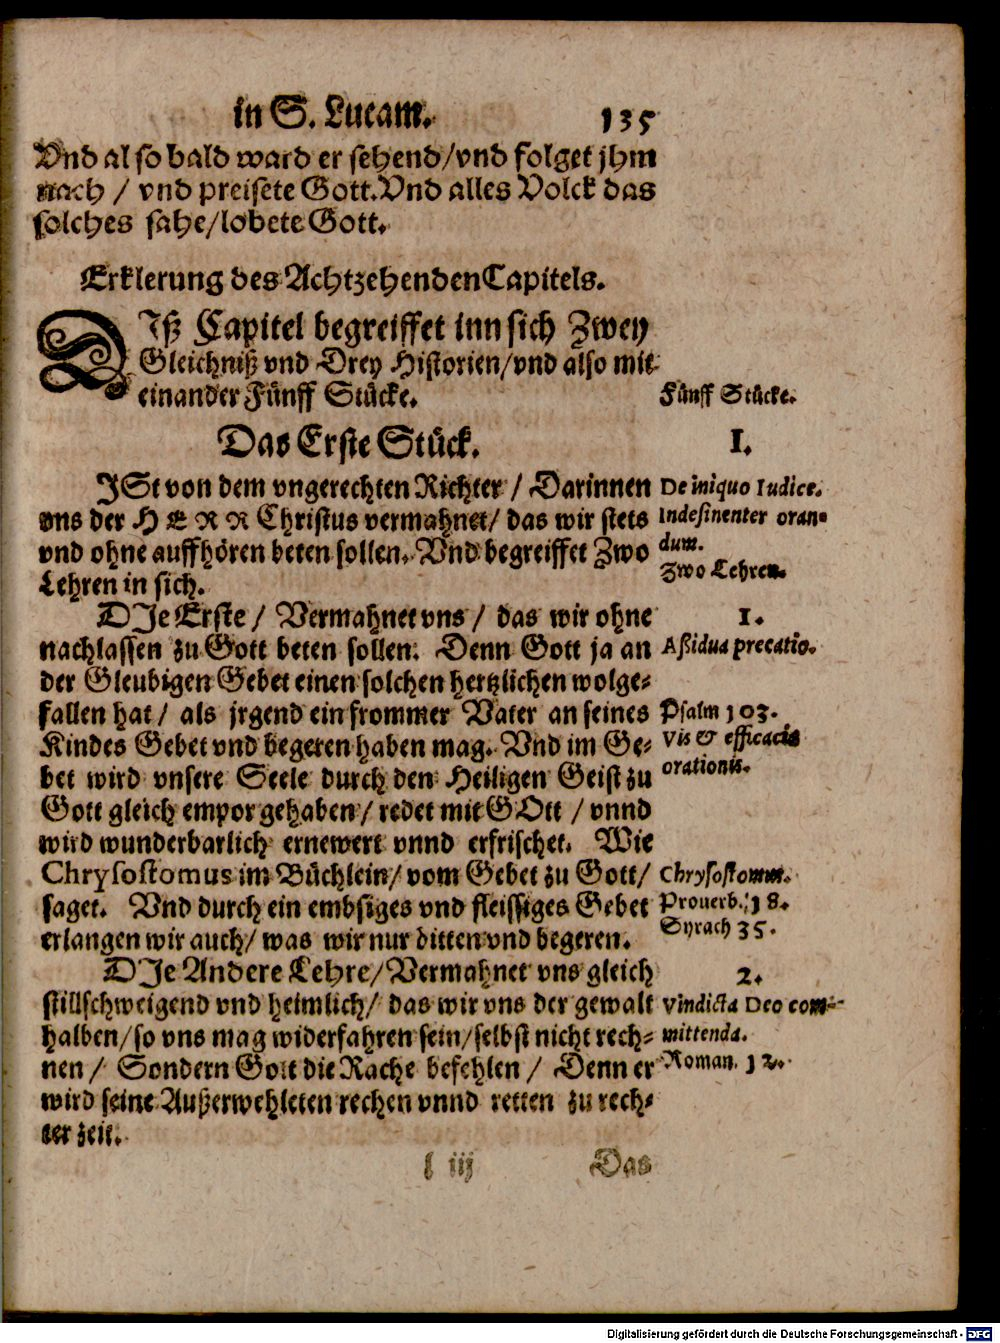 in S. Lucam. 135
Vnd also bald ward er sehend/vnd folget jhm
nach / vnd preisete Gott. Vnd alles Volck das
solches sahe/lobete Gott.
Erklerung des Achtzehenden Capitels.
DIß Capitel begreiffet inn sich Zwey
Gleichniß vnd Drey Historien/vnd also mit
einander Fünff Stücke.
Fünff Stücke.
Das Erste Stück.
I.
JSt von dem vngerechten Richter / Darinnen
De iniquo Iudice.
vns der HERR Christus vermahnet/ das wir stets
Indesinenter oran-
vnd ohne auffhören beten sollen. Vnd begreiffet Zwo
dum.
Lehren in sich.
Zwo Lehren.
DJe Erste / Vermahnet vns / das wir ohne
1.
nachlassen zu Gott beten sollen. Denn Gott ja an
Aßidua precatio.
der Gleubigen Gebet einen solchen hertzlichen wolge-
fallen hat / als jrgend ein frommer Vater an seines
Psalm 103.
Kindes Gebet vnd begeren haben mag. Vnd im Ge-
Vis & efficacia
bet wird vnsere Seele durch den Heiligen Geist zu
orationis.
Gott gleich empor gehaben / redet mit GOtt / vnnd
wird wunderbarlich ernewert vnnd erfrischet. Wie
Chrysostomus im Büchlein/ vom Gebet zu Gott/
Chrysostomm.
saget. Vnd durch ein embsiges vnd fleissiges Gebet
Prouerb. 18.
erlangen wir auch/ was wir nur bitten vnd begeren.
Syrach 35.
DJe Andere Lehre/Vermahnet vns gleich
2.
stillschweigend vnd heimlich/ das wir vns der gewalt
Vindicta Deo com-
halben/so vns mag widerfahren sein/selbst nicht rech-
mittenda.
nen / Sondern Gott die Rache befehlen / Denn er
Roman. 12.
wird seine Außerwehleten rechen vnnd retten zu rech-
ter zeit.
l iij Das
Digitalisierung gefördert durch die Deutsche Forschungsgemeinschaft - DFG